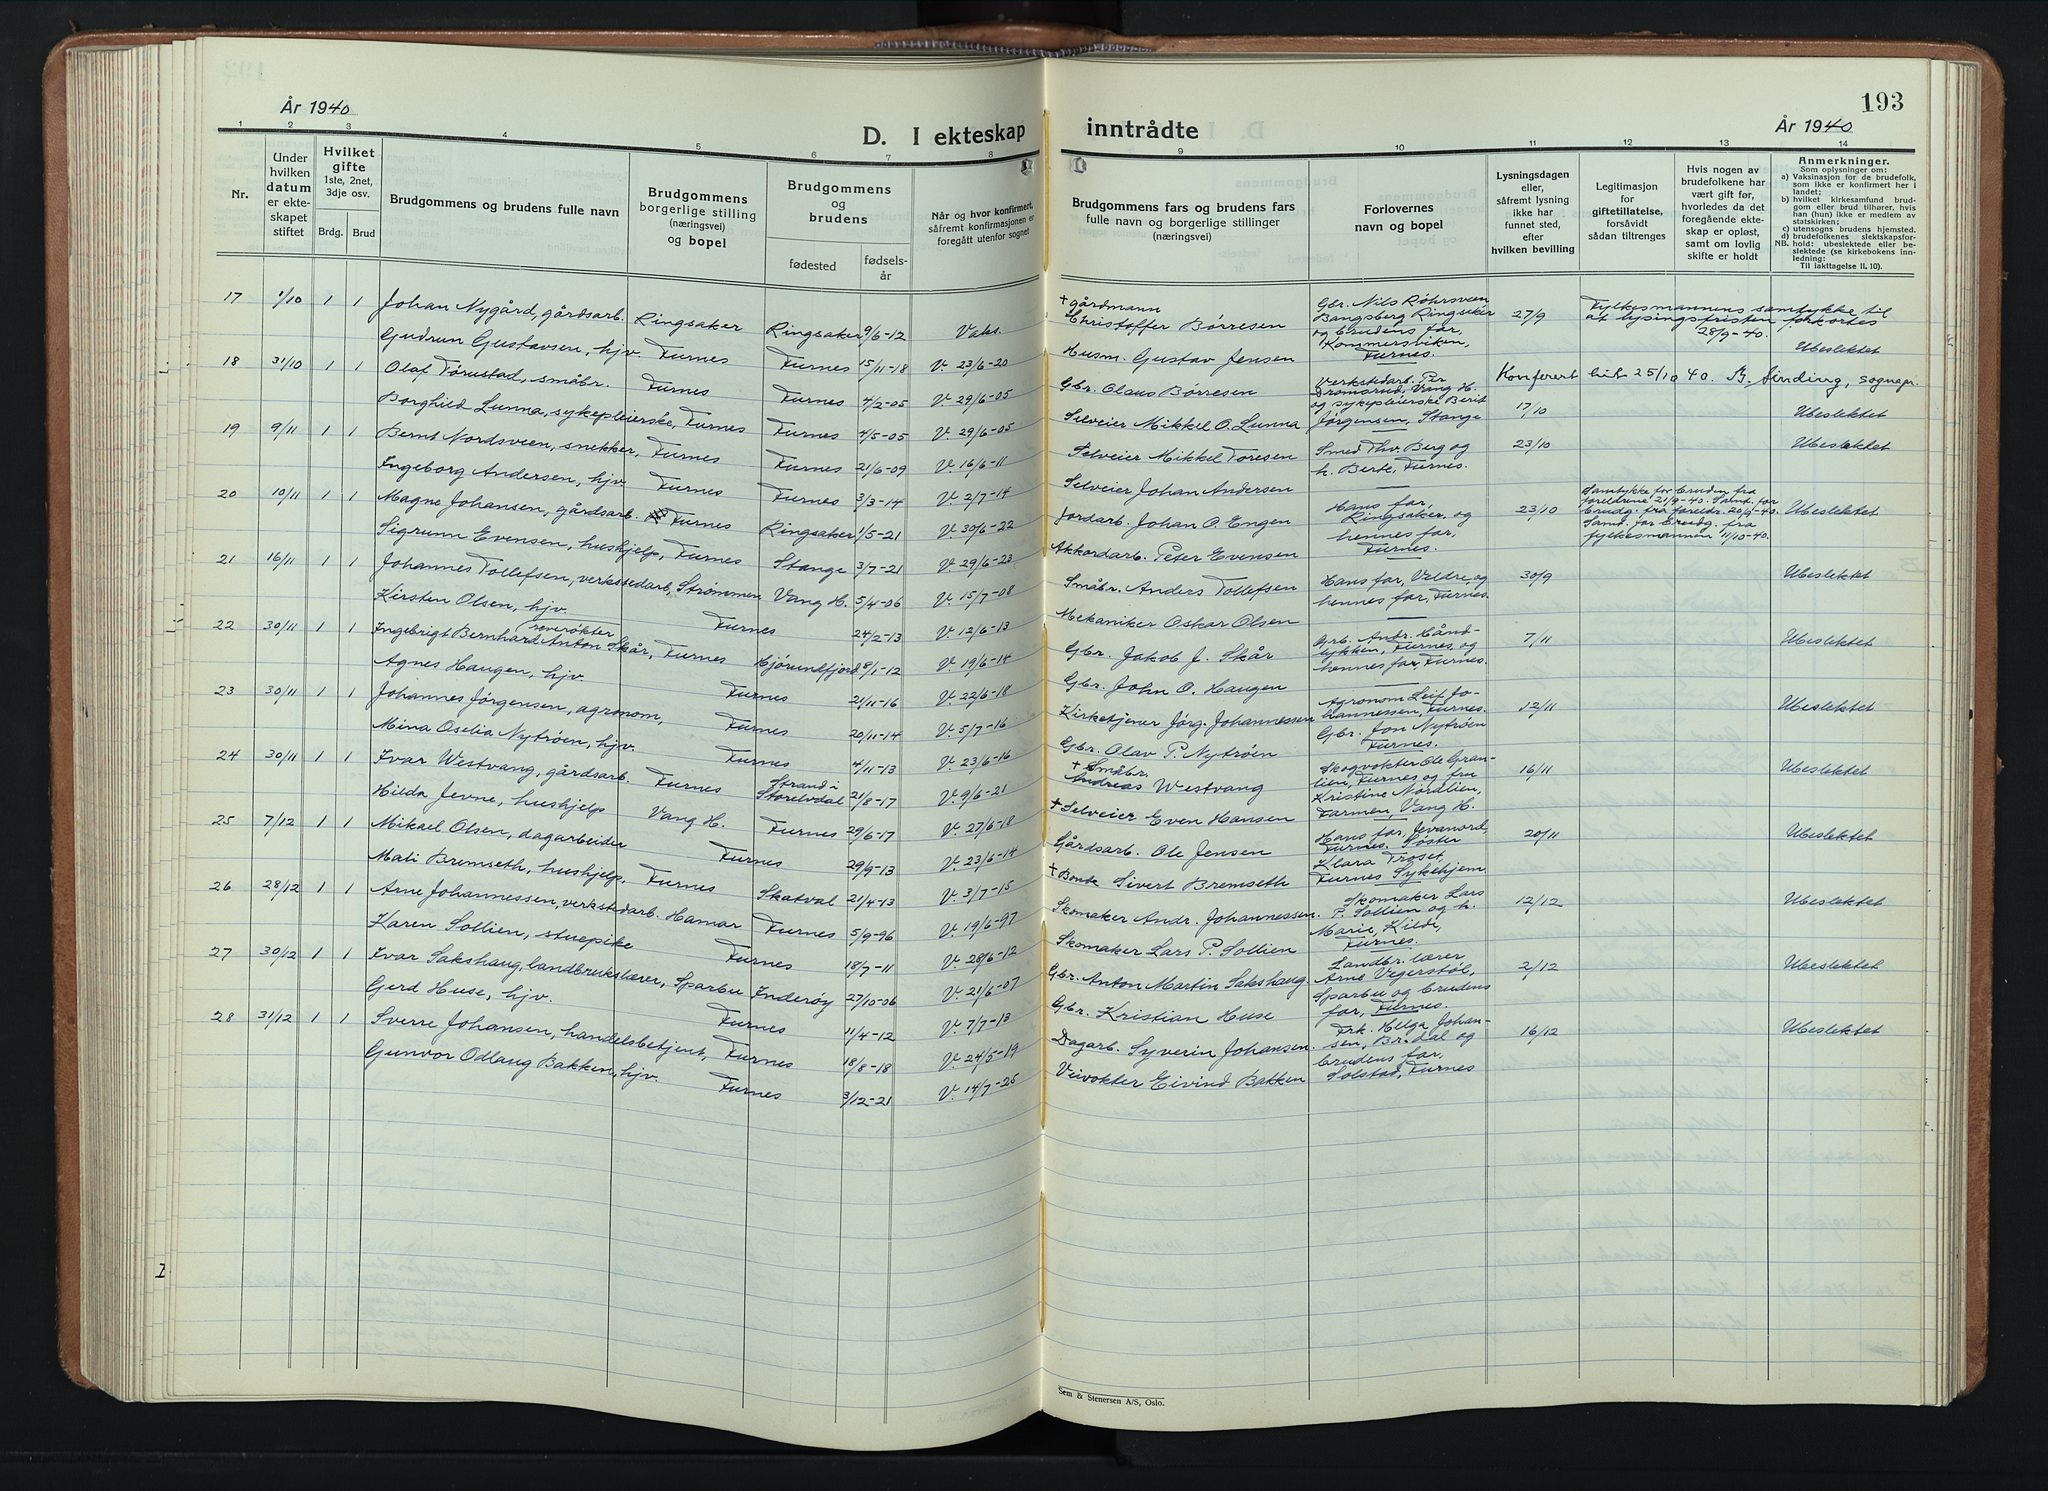 193
År 1940
D. I ekteskap inntrådte
År 1940
1 2 3 4 5 6 7 8 9 10 11 12 13 14
Nr.
Under hvilken datum er ekteskapet stiftet
Hvilket gifte 1ste, 2net, 3dje osv.
Brdg. Brud
Brudgommens og brudens fulle navn
Brudgommens borgerlige stilling (næringsvei) og bopel
Brudgommens og brudens
fødested
fødselsår
Når og hvor konfirmert, såfremt konfirmasjonen er foregått utenfor sognet
Brudgommens fars og brudens fars fulle navn og borgerlige stillinger (næringsvei)
Forlovernes navn og bopel
Lysningsdagen eller, såfremt lysning ikke har funnet sted, efter hvilken bevilling
Legitimasjon for giftetillatelse, forsåvidt sådan tiltrenges
Hvis nogen av brudefolkene har vært gift før, hvorledes da det foregående ekteskap er opløst, samt om lovlig skifte er holdt
Anmerkninger.
Som oplysninger om:
a) Vaksinasjon for de brudefolk, som ikke er konfirmert her i landet;
b) hvilket kirkesamfund brudgom eller brud tilhører, hvis han (hun) ikke er medlem av statskirken;
c) utensogns brudens hjemsted.
d) brudefolkenes slektskapsforhold: ubeslektede eller beslektede (se kirkebokens innledning:
NB.
Til iakttagelse II, 10).
17 1/10 1 1 Johan Nygård, gårdsarb. Ringsaker Ringsaker 9/6-12 Vaks. + gårdmann Christoffer Børresen Gbr. Nils Røhrsveen Bangsberg Ringsaker og brudens far, Kommersviken, Furnes. 27/9 Fylkesmannens samtykke til at lysingsfristen forkortes 28/9-40. Ubeslektet
Gudrun Gustavsen, hjv. Furnes Furnes 15/11-18 V. 23/6-20 Husm. Gustav Jensen
Konferert hit 25/10 40. Sinding, sognepr.
18 31/10 1 1 Olaf Torustad, småbr. Furnes Furnes 4/2-05 V. 29/6-05 Gbr. Olaus Børresen Verkstedarb. Per Dromsrud, Vang H. og sykepleierske Berit Jørgensen, Stange 17/10 Ubeslektet
Borghild Lunna, sykepleierske, Furnes Furnes 4/5-05 V. 29/6-05 Selveier Mikkel O. Lunna
19 9/11 1 1 Bernt Nordsveen, snekker, Furnes Furnes 21/6-09 V. 16/6-11 Selveier Mikkel Toresen Smed Thv. Berg og h. Berte, Furnes. 23/10 Ubeslektet
Ingeborg Andersen, hjv. Furnes Furnes 3/3-14 V. 2/7-14 Selveier Johan Andersen
20 10/11 1 1 Magne Johansen, gårdsarb. Furnes Ringsaker 1/5-21 V. 30/6-22 Jordarb. Johan O. Engen Hans far, Ringsaker, og hennes far, Furnes. 23/10 Samtykke for bruden fra foreldrene 21/9-40. Samt. for brudg. fra foreldr. 20/9-40. Samt. for brudg. fra fylkesmannen 11/10-40. Ubeslektet
Sigrunn Evensen, hushjelp, Furnes Stange 3/7-21 V. 29/6-23 Akkordarb. Peter Evensen
21 16/11 1 1 Johannes Tollefsen, verkstedarb, Strømmen Vang H. 5/4-06 V. 15/7-08 Småbr. Anders Tollefsen Hans far, Veldre, og hennes far, Furnes. 30/9 Ubeslektet
Kirsten Olsen, hjv. Furnes 24/2-13 V. 12/6-13 Mekaniker Oskar Olsen
22 30/11 1 1 Ingebrigt Bernhard Anton Skår, røverøkter Furnes Hjørundfjord 8/1-12 V. 19/6-14 Gbr. Jakob J. Skår Grb. Andr. Håndlykken, Furnes, og hennes far, Furnes. 7/11 Ubeslektet
Agnes Haugen, hjv. Furnes 21/11-16 V. 22/6-18 Gbr. John O. Haugen
23 30/11 1 1 Johannes Jørgensen, agronom, Furnes 20/11-14 V. 5/7-16 Kirketjener Jørg. Johannessen Agronom Leif Johannessen, Furnes. Gbr. Jon Nytrøen Furnes. 12/11 Ubeslektet
Mina Oselia Nytrøen, hjv. Furnes 4/11-13 V. 23/6-16 Gbr. Olav P. Nytrøen
24 30/11 1 1 Ivar Westvang, gårdsarb. Furnes Strand i Storelvdal 21/8-17 V. 9/6-21 + Småbr. Andreas Westvang Skogvokter Ole Granlien, Furnes og fru Kristine Nordlien, Farmen, Vang H. 16/11 Ubeslektet
Hilda Jevne, hushjelp Vang H. Furnes 29/6-17 V. 27/6-18 + Selveier Even Hansen
25 7/12 1 1 Mikael Olsen, dagarbeider Furnes 29/9-13 V. 23/6-14 Gårdsarb. Ole Jensen Hans far, Jevanord, Furnes. Søster Klara Troset, Furnes Sykehjem 20/11 Ubeslektet
Mali Bremseth, hushjelp, Furnes Skatval 21/4-13 V. 3/7-15 + Bonde Sivert Bremseth
26 28/12 1 1 Arne Johannessen, verkstedarb. Hamar Furnes 5/9-96 V. 19/6-97 Skomaker Andr. Johannessen. Skomaker Lars P. Sollien og h. Marie, Kilde, Furnes. 12/12 Ubeslektet
Karen Sollien, stuepike Furnes 18/7-11 V. 28/6-12 Skomaker Lars P. Sollien
27 30/12 1 1 Ivar Sakshaug, landbrukslærer, Sparbu Inderøy 27/10-06 V. 21/6-07 Gbr. Anton Martin Sakshaug. Landbr. lærer Arne Vegerstøl, Sparbu og brudens far, Furnes. 2/12 Ubeslektet
Gerd Huse, hjv. Furnes 11/4-12 V. 7/7-13 Gbr. Kristian Huse
28 31/12 1 1 Sverre Johansen, handelsbetjent, Furnes 18/8-18 V. 24/5-19 Dagarb. Syverin Johansen. Frk. Helga Johansen, Brdal og brudens far, Solstad, Furnes 16/12 Ubeslektet
Gunvor Odlaug Bakken, hjv. Furnes 3/12-21 V. 14/7-25 Veivokter Eivind Bakken
Sem & Stenersen A/S, Oslo.